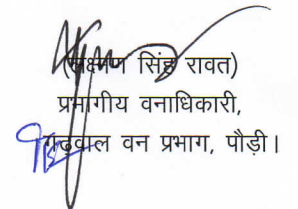 (लक्ष्मण सिंह रावत)
प्रभागीय वनाधिकारी,
गढ़वाल वन प्रभाग, पौड़ी।